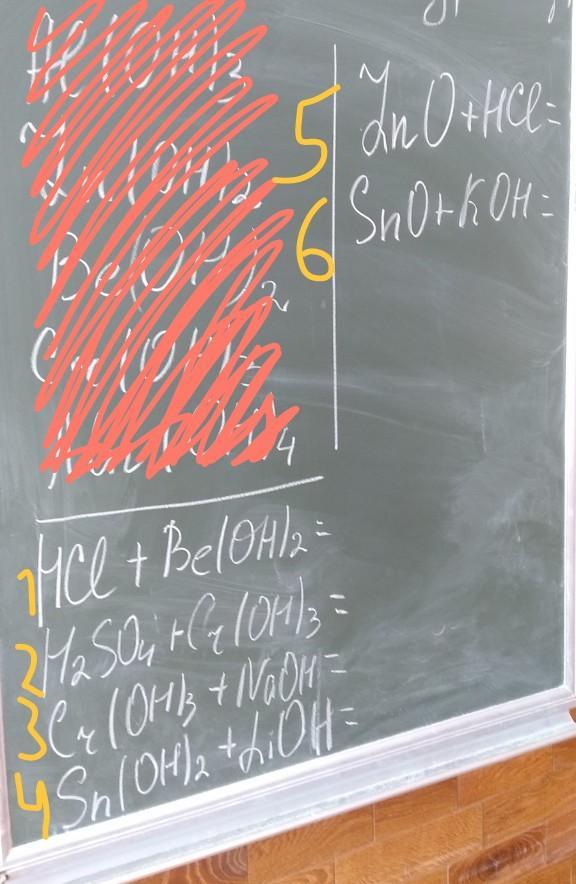 Zn(OH)2
Be(OH)2
5 ZnO+HCl=
6 SnO+KOH=
1 HCl + Be(OH)2=
2 H2SO4+Cr(OH)3=
3 Cr(OH)3+NaOH=
4 Sn(OH)2+LiOH=